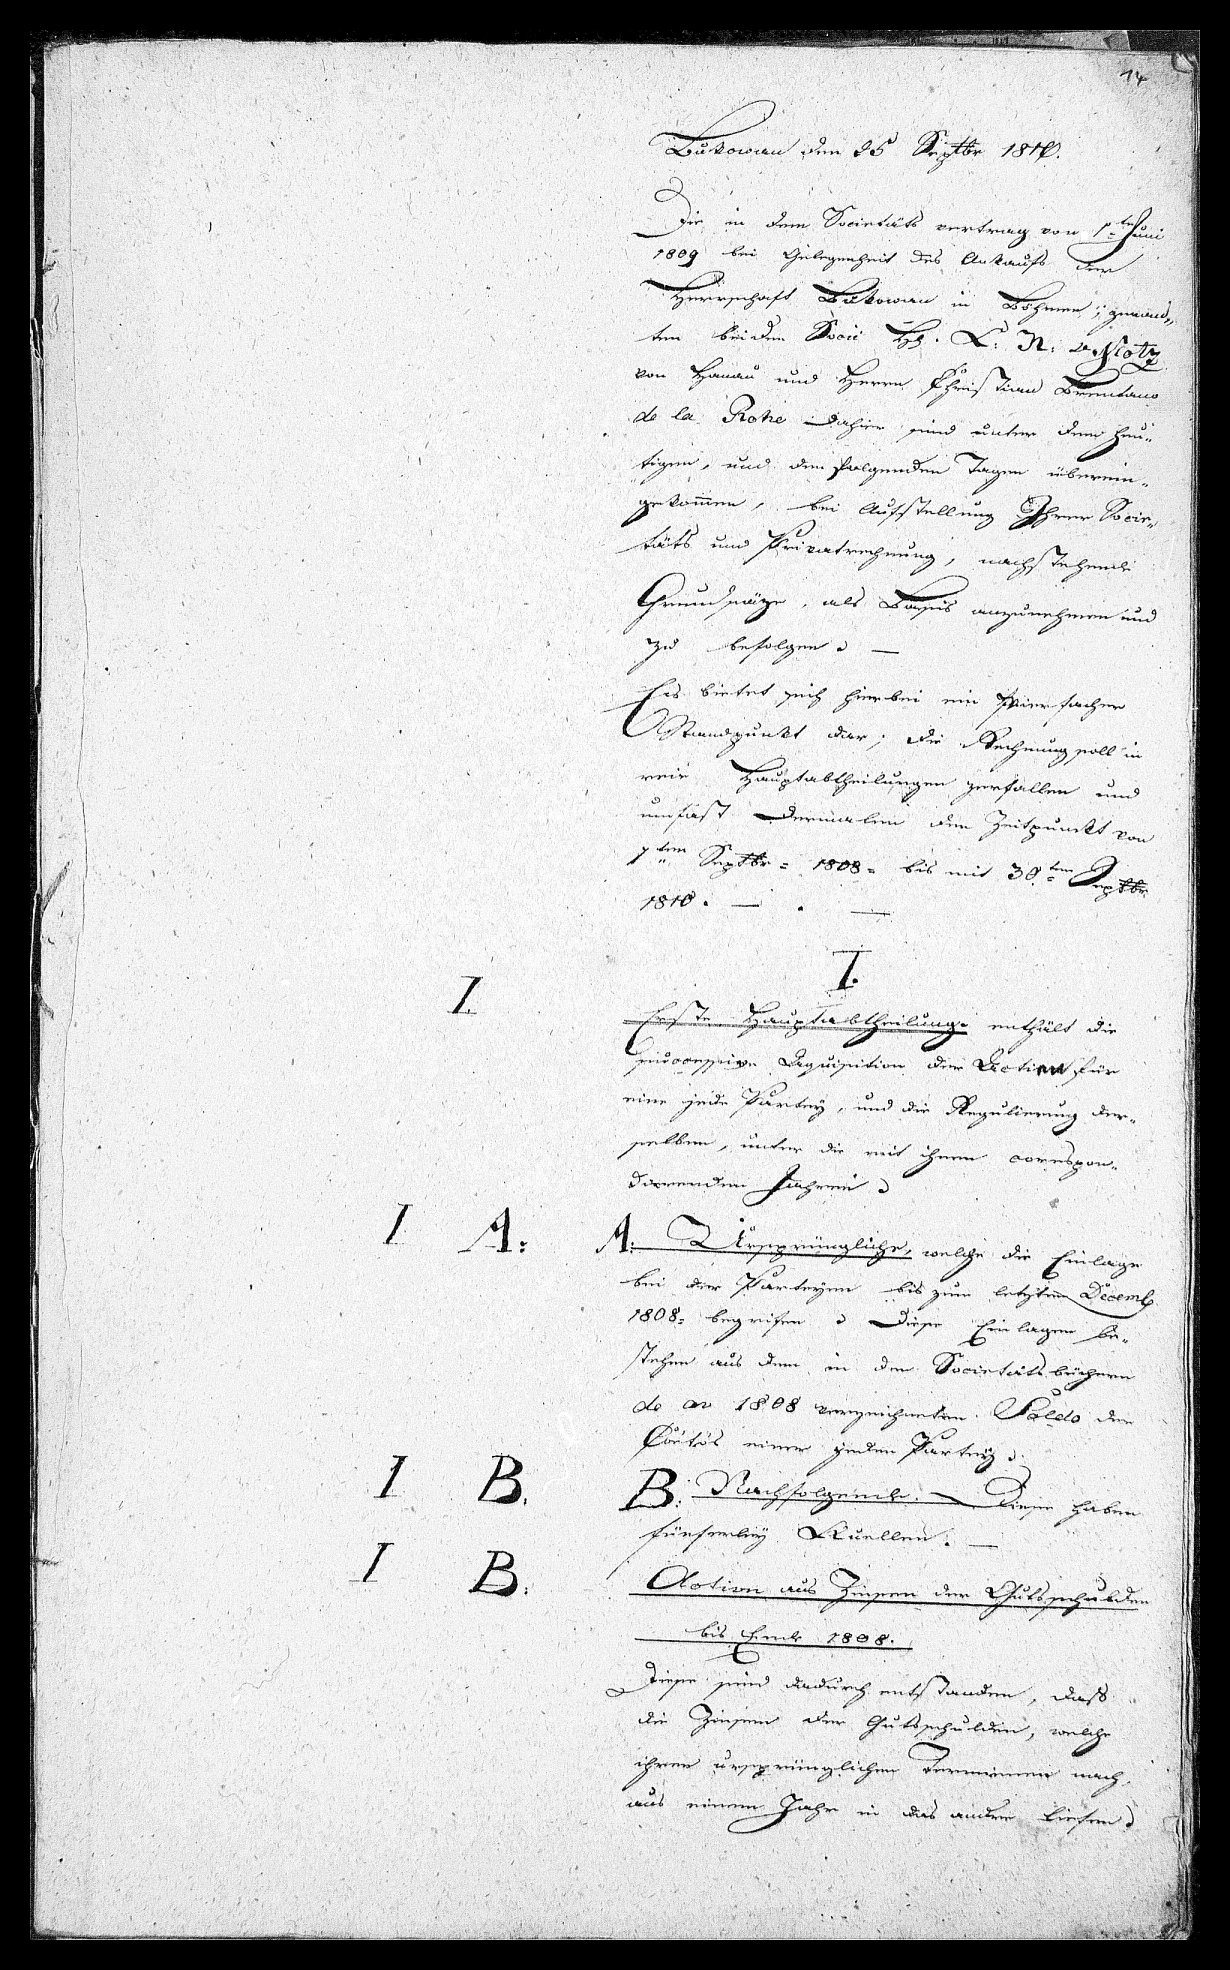 14
Bukowan den 25 Septbr 1810.
Die in dem Societäts vertrag von 1ten Juni
1809 bei Gelegenheit des Ankaufs der
Herrschaft Bukowan in Böhmen, genand„
ten beiden Socii H. C: N: v Motz
von Hanau und Herrn Christian Brentano
de la Roche dahier sind unter dem heu„
tigen, und den folgenden Tagen überein„
gekom̄en, bei Aufstellung Ihrer Socie„
täts und Privatrechnung, nachstehende
Grundsäze, als Basis anzunehmen und
zu befolgen. —
Es bietet sich hierbei ein 
Standpunkt dar; die Rechnung soll in
 Hauptabtheilungen zerfallen und
umfast dermalen den Zeitpunkt von
1ten Septbr = 1808 = bis mit 30.ten Septbr.
1810. — . —
I.
I. Erste Hauptabtheilung. enthält die
successive Aquisition der Actien für
eine jede Partey, und die Regulierung der„
selben, unter die mit ihnen corespon„
direnden Jahren.
I A: A: Ursprüngliche, welche die Einlage
bei der Parteyen bis zum letzten Decemb.
1808= begreifen. Diese Einlagen be„
stehen aus dem in den Societätsbüchern
de ao 1808 verzeichneten Saldo des
Co͞to's einer jeden Partey.
I B. B: Nachfolgende. Diese haben
fünferley Quellen. —
I B: Actien aus Zinsen der Gutsschulden
bis Ende 1808.
Diese sind dadurch entstanden, dass
die Zinsen der Gutsschulden, welche
ihren ursprünglichen Terminen nach,
aus einem Jahr in das andre liefen.